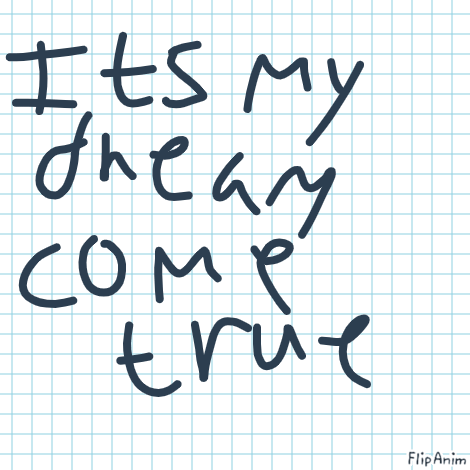 Its my
dream
come
true
FlipAnim